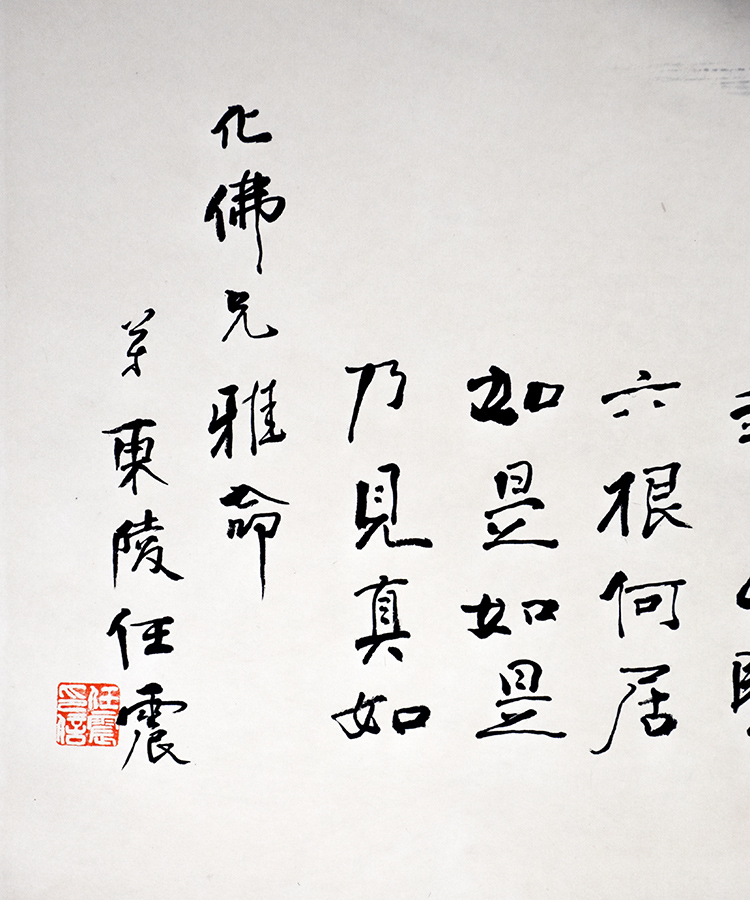 六根何居
如是如是
乃見真如
化佛兄雅命
弟東陵任震
任震
印信